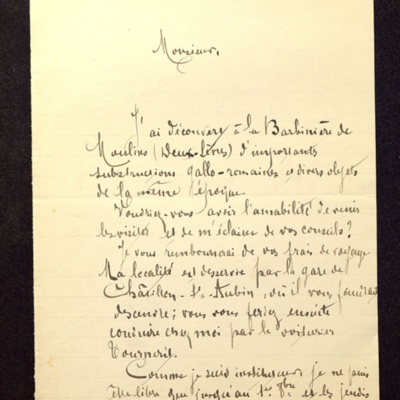 Monsieur,
J'ai découvert à la Barbinière de
Moulins (Deux-Sèvres) d'importants
substructions gallo-romaines et divers objets
de la même époque.
Voudriez-vous avoir l'amabilité de venir
les visiter et de m'éclairer de vos conseils?
Je vous rembourserai de vos frais de voyage
Ma localité est desservie par la gare de
Châtillon-St-Aubin, où il vous faudrait
descendre; vous vous feriez ensuite
conduire chez moi par le voiturier
Comme je suis instituteur je ne puis
être libre que jusqu'au 1er 8bre et les jeudis